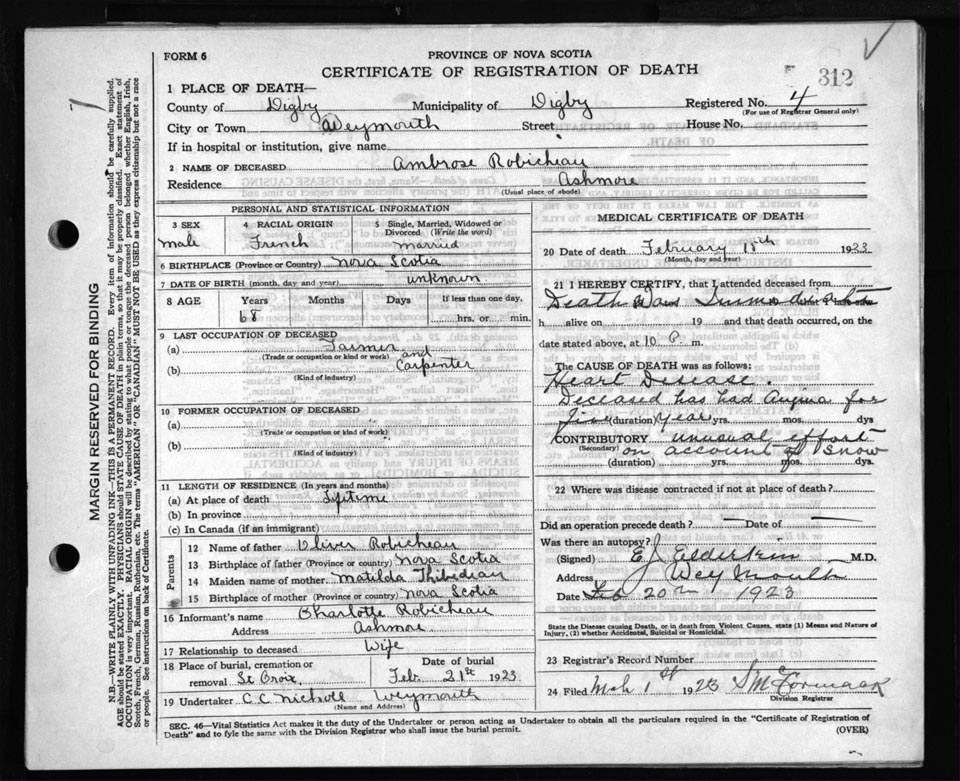 FORM 6
PROVINCE OF NOVA SCOTIA
CERTIFICATE OF REGISTRATION OF DEATH
312
1 PLACE OF DEATH—
County of Digby Municipality of Digby Registered No. 4
(For use of Registrar General only)
City or Town Weymouth Street House No.
If in hospital or institution, give name
2 NAME OF DECEASED Ambrose Robicheau
Residence Ashmore
(Usual place of abode)
PERSONAL AND STATISTICAL INFORMATION
3 SEX 4 RACIAL ORIGIN 5 Single, Married, Widowed or Divorced (Write the word)
male French married
6 BIRTHPLACE (Province or Country) Nova Scotia
7 DATE OF BIRTH (month, day and year) unknown
8 AGE Years Months Days If less than one day,
68 hrs. or min.
9 LAST OCCUPATION OF DECEASED
(a) Farmer and
(Trade or occupation or kind or work)
(b) Carpenter
(Kind of industry)
10 FORMER OCCUPATION OF DECEASED
(a)
(Trade or occupation or kind or work)
(b)
(Kind of industry)
11 LENGTH OF RESIDENCE (In years and months)
(a) At place of death Lifetime
(b) In province
(c) In Canada (if an immigrant)
Parents
12 Name of father Oliver Robicheau
13 Birthplace of father (Province or country) Nova Scotia
14 Maiden name of mother Matilda Thibideau
15 Birthplace of mother (Province or country) Nova Scotia
16 Informant's name Charlotte Robicheau
Address Ashmore
17 Relationship to deceased Wife
18 Place of burial, cremation or removal St Croix Date of burial Feb. 21st 1923
19 Undertaker C. C. Nichols Weymouth
(Name and Address)
MEDICAL CERTIFICATE OF DEATH
20 Date of death February 18th 1923
(Month, day and year)
21 I HEREBY CERTIFY, that I attended deceased from
Death Was
h alive on 19 and that death occurred, on the
date stated above, at 10 P. m.
The CAUSE OF DEATH was as follows:
Heart Disease.
Deceased has had Angina for
(duration) year yrs. mos. dys
CONTRIBUTORY unusual effort
(Secondary) on account of snow
(duration) yrs. mos. dys.
22 Where was disease contracted if not at place of death?
Did an operation precede death? — Date of —
Was there an autopsy?
(Signed) E J Elderkin M.D.
Address Weymouth
Date Feb 20th 1923
State the Disease causing Death, or in death from Violent Causes, state (1) Means and Nature of Injury, (2) whether Accidental, Suicidal or Homicidal.
23 Registrar's Record Number
24 Filed Mch 1st 1923 S McCormack
Division Registrar
SEC. 46—Vital Statistics Act makes it the duty of the Undertaker or person acting as Undertaker to obtain all the particulars required in the "Certificate of Registration of
Death" and to fyle the same with the Division Registrar who shall issue the burial permit.
(OVER)
MARGIN RESERVED FOR BINDING
N.B.—WRITE PLAINLY WITH UNFADING INK—THIS IS A PERMANENT RECORD. Every item of Information should be carefully supplied.
AGE should be stated EXACTLY. PHYSICIANS should STATE CAUSE OF DEATH in plain terms, so that it may be properly classified. Exact statement of
OCCUPATION is very important. RACIAL ORIGIN will be described by stating to what people or tongue the deceased person belonged whether English, Irish,
Scotch, French, German, Russian, Ruthenian, etc. The terms "AMERICAN" or "CANADIAN" MUST NOT BE USED as they express citizenship but not a race
or people. See instructions on back of Certificate.